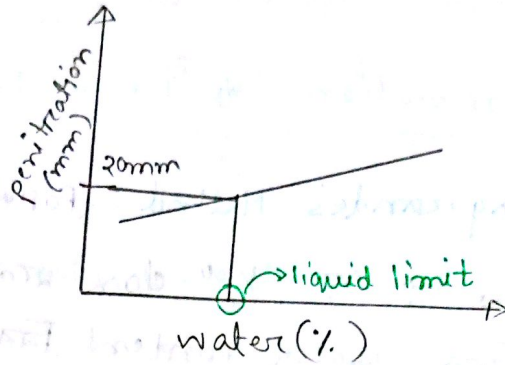 Penitration
(mm)
20mm
liquid limit
water (%)